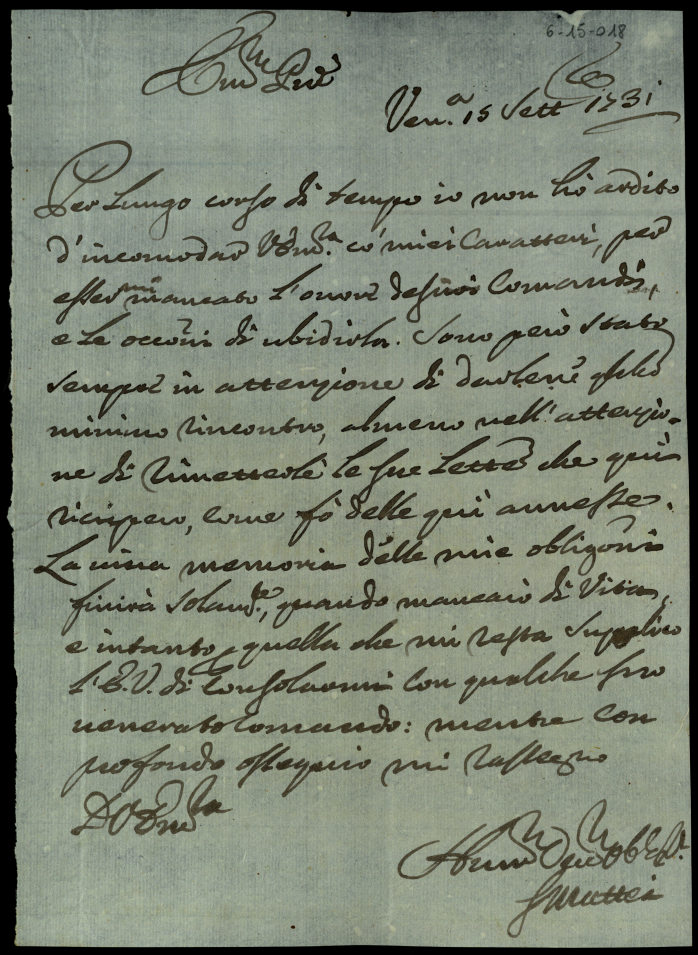 6-15-018
Em.mo Prē
Ven.a 15 Sett.e 1731
Per lungo corso di tempo io non hò ardito
d'incomodar V. Em.a co' miei Caratteri, per
esser mi mancato l'onore de suoi Comandi,
e le occōni di ubidirla. Sono però stato
sempre in attenzione di darlene qualche
minimo rincontro, almeno nell'attenzio-
ne di rimetterle le sue lettere che quì
ricupero, come fò delle quì annesse.
La mia memoria delle mie obligōni
finirà solam.te, quando mancarò di Vita,
e intanto, quella che mi resta supplico
l'E.V. di consolarmi con qualche suo
venerato Comando: mentre con
profondo ossequio mi rassegno
D. V. Em.za
G Mattei